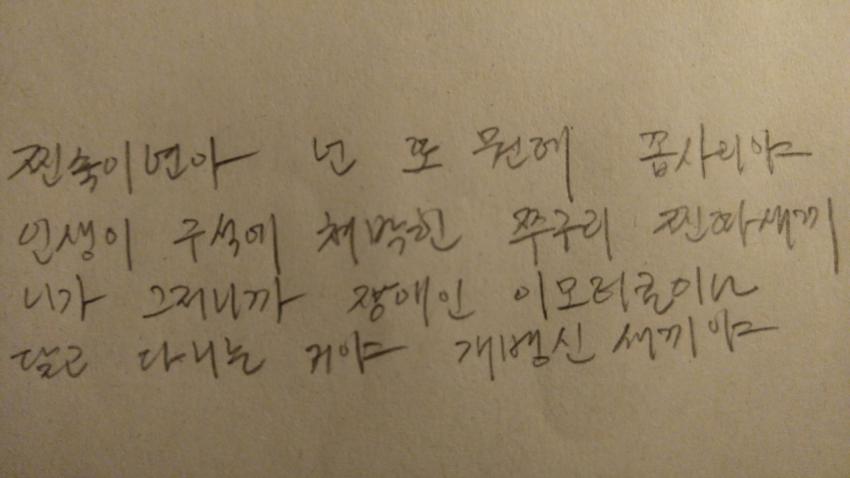 찐숙이년아 넌 또 뭔데 꼽사리야
인생이 구석에 쳐박힌 쭈구리 찐따새끼
니가 그러니까 장애인 이모티콘이나
달고 다니는 거야 개병신 새끼야